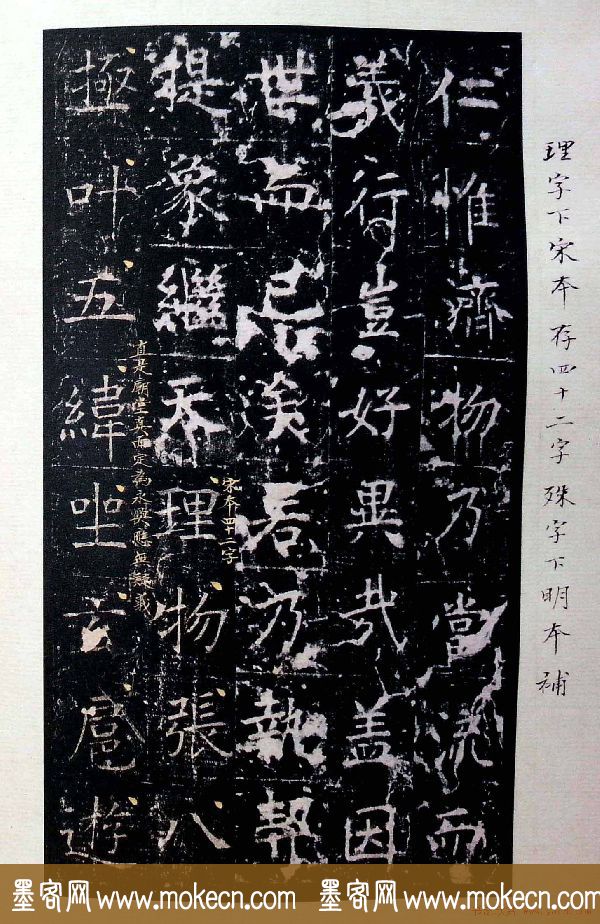 理字下宋本存四十二字殊字下明本補
仁惟濟物乃當流而
義行豈好異哉盖因
世而已矣若乃執契
宋本四十二字
提象繼天理物張八
直是廟堂真而定為永興應無疑義
極叶五緯坐玄扈遊
墨客网 www.mokecn.com 墨客网 www.mokecn.com